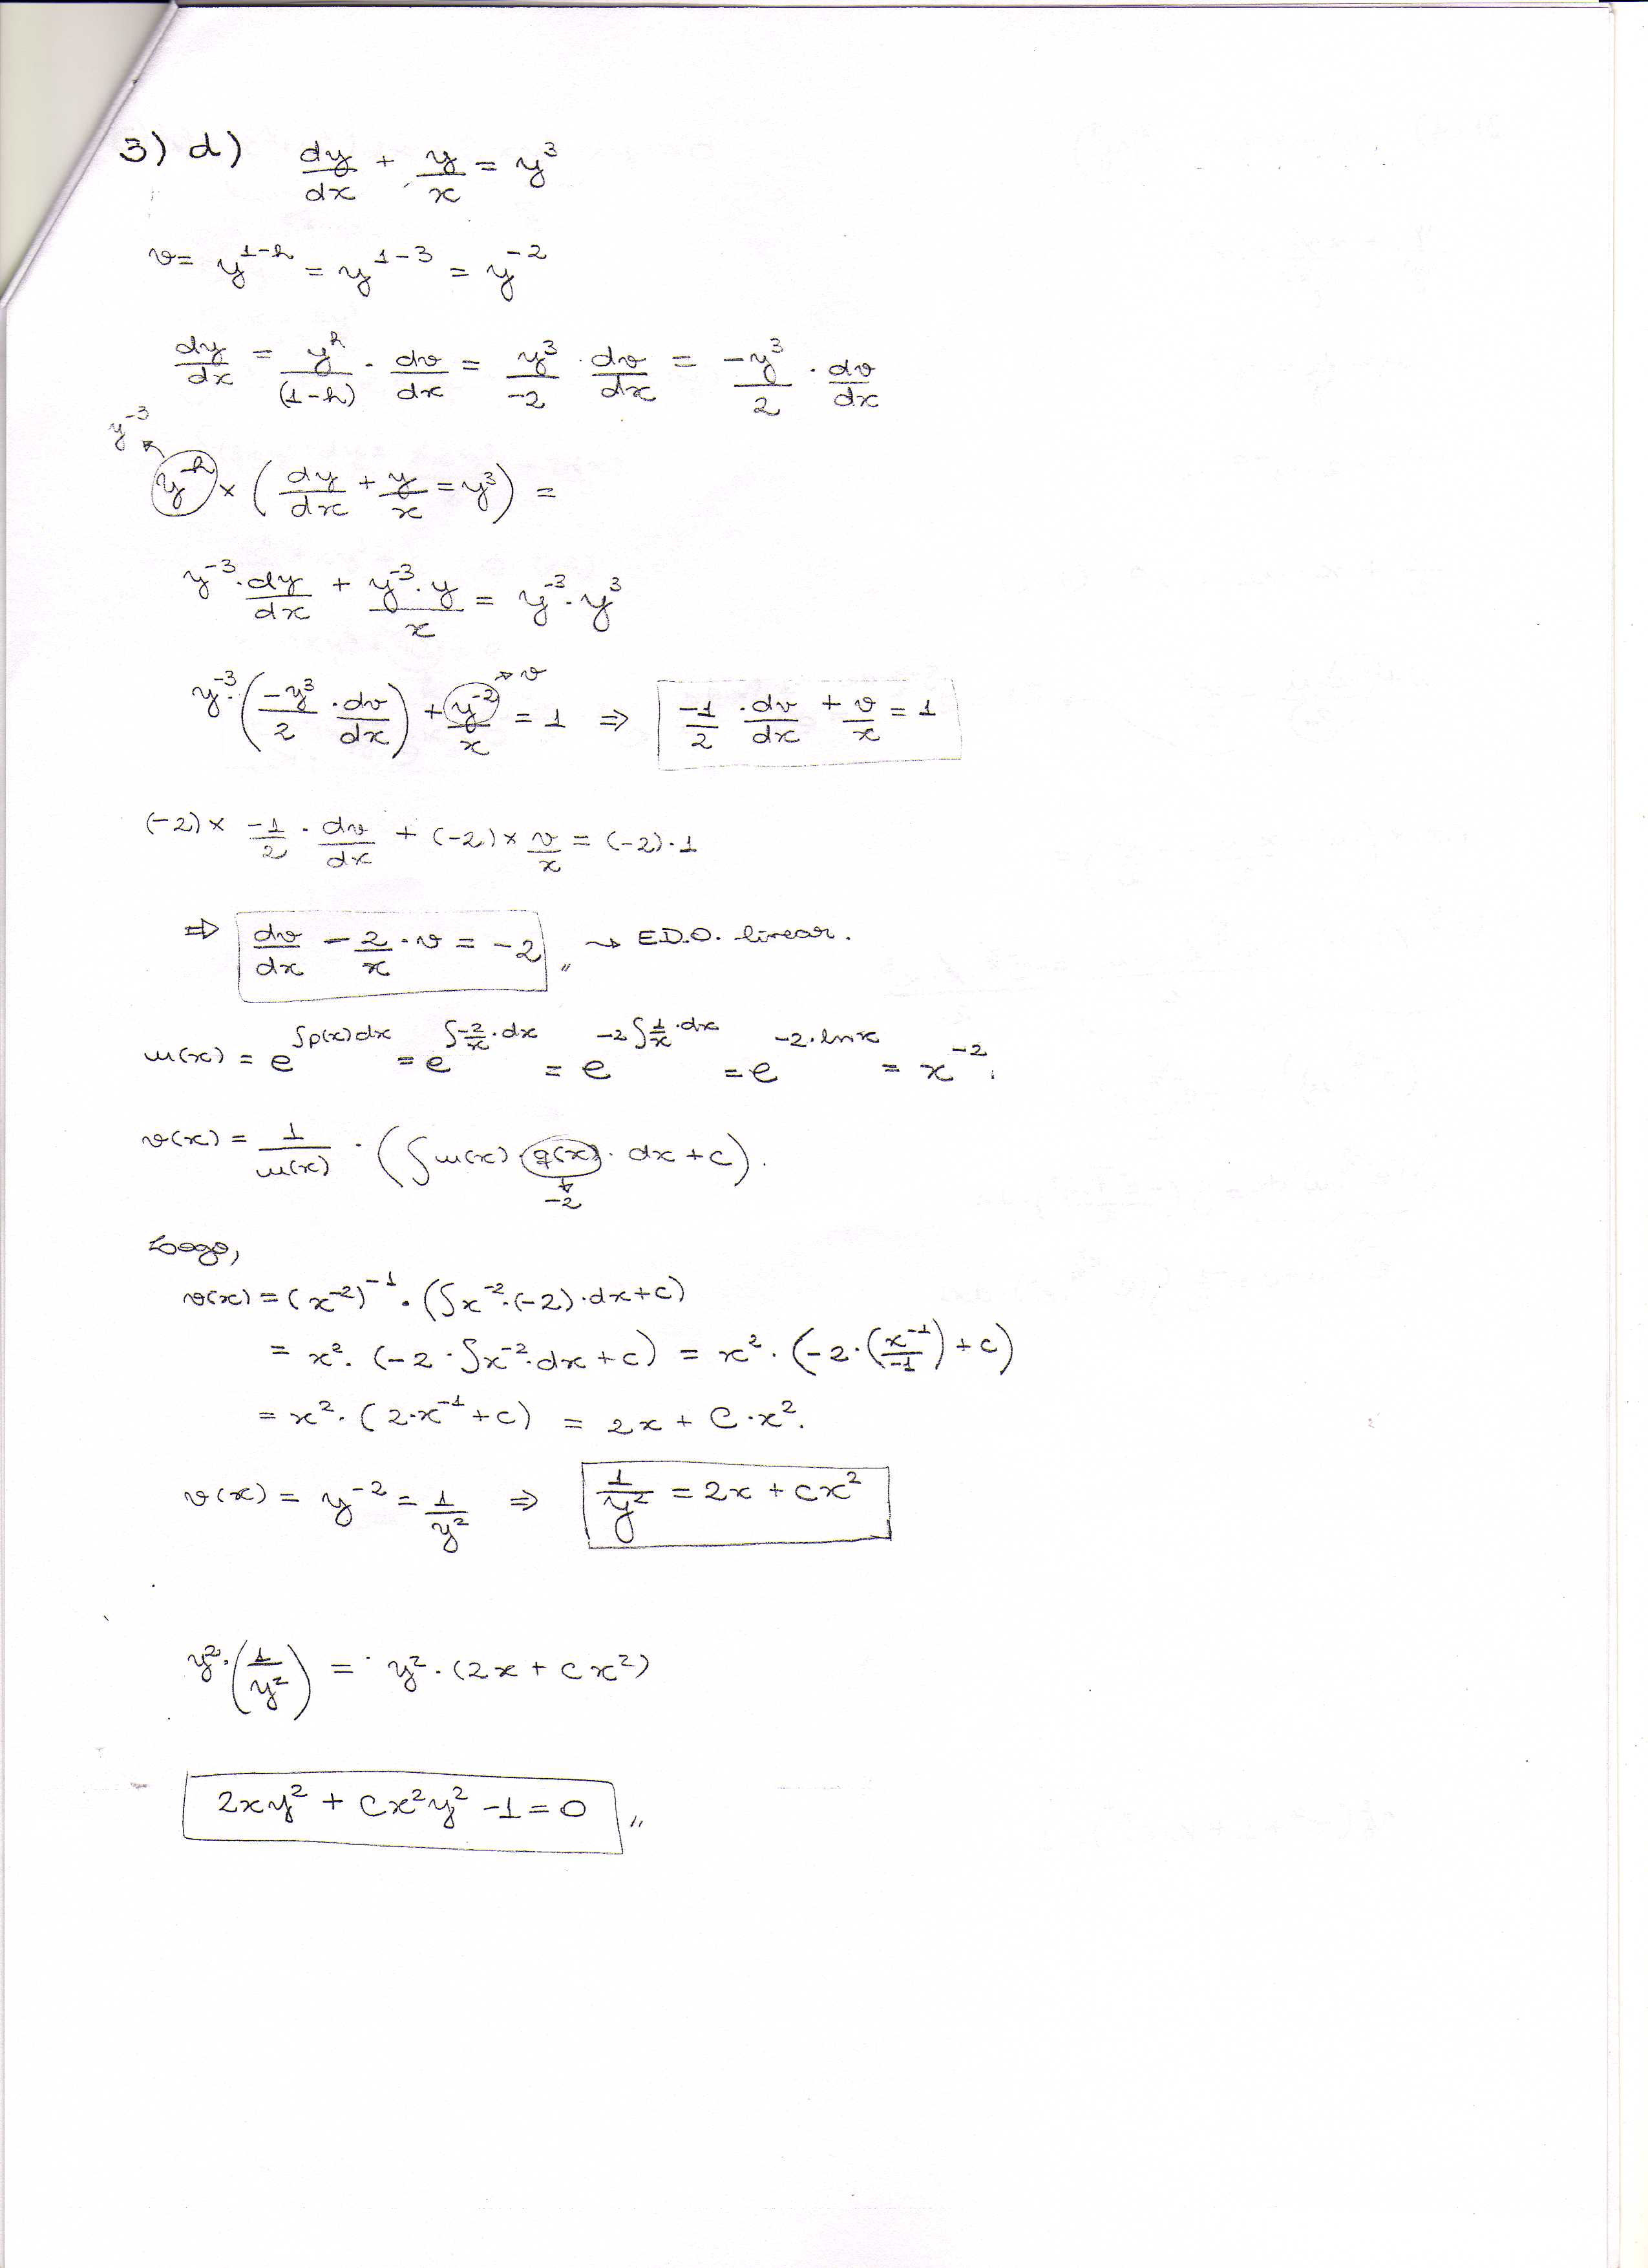 3) d) dy/dx + y/x = y³
v = y^(1-n) = y^(1-3) = y^(-2)
dy/dx = y^n/(1-n) · dv/dx = y³/-2 · dv/dx = -y³/2 · dv/dx
y^(-3)
y^(-n) × (dy/dx + y/x = y³) =
y^(-3) · dy/dx + y^(-3) · y/x = y^(-3) · y³
y^(-3) · (-y³/2 · dv/dx) + y^(-2)/x = 1 ⇒ -1/2 · dv/dx + v/x = 1
→ v
(-2) × -1/2 · dv/dx + (-2) × v/x = (-2) · 1
⇒ dv/dx - 2/x · v = -2 ,, → E.D.O. linear.
u(x) = e^(∫p(x)dx) = e^(∫-2/x · dx) = e^(-2∫1/x · dx) = e^(-2 · lnx) = x^(-2).
v(x) = 1/u(x) · (∫u(x) · q(x) · dx + c).
-2
Logo,
v(x) = (x^(-2))^(-1) · (∫x^(-2) · (-2) · dx + c)
= x² · (-2 · ∫x^(-2) · dx + c) = x² · (-2 · (x^(-1)/-1) + c)
= x² · (2 · x^(-1) + c) = 2x + C · x².
v(x) = y^(-2) = 1/y² ⇒ 1/y² = 2x + cx²
y² · (1/y²) = y² · (2x + cx²)
2xy² + cx²y² - 1 = 0 ,,